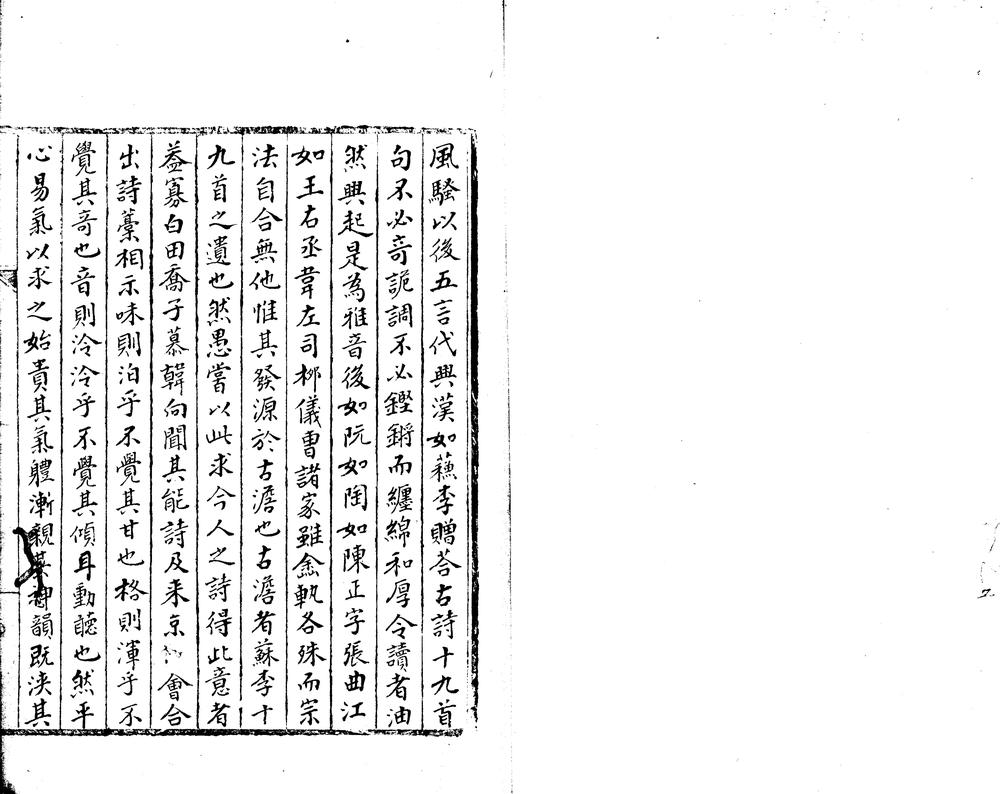 風騷以後五言代興漢如蘓李贈荅古詩十九首
句不必竒詭調不必鏗鏘而纏綿和厚令讀者油
然興起是為雅音後如阮如陶如陳正字張曲江
如王右丞韋左司栁儀曹諸家雖塗軌各殊而宗
法自合無他惟其發源於古澹也古澹者蘇李十
九首之遺也然愚嘗以此求今人之詩得此意者
葢寡白田喬子慕韓向聞其能詩及来京 會合
出詩藳相示味則泊乎不覺其甘也格則渾乎不
覺其竒也音則泠泠乎不覺其傾耳動聽也然平
心易氣以求之始貴其氣體漸親其神韻既浹其